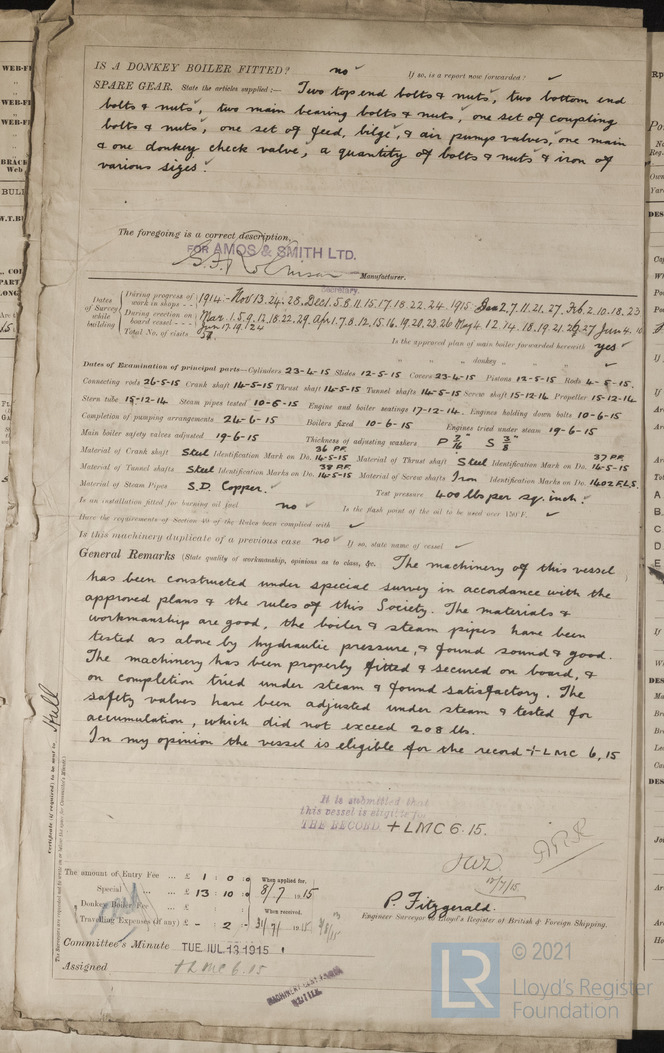 IS A DONKEY BOILER FITTED? no ✓ If so, is a report now forwarded? ✓
SPARE GEAR. State the articles supplied:— Two top end bolts & nuts, two bottom end
bolts & nuts, two main bearing bolts & nuts, one set of coupling
bolts & nuts, one set of feed, bilge, & air pump valves, one main
& one donkey check valve, a quantity of bolts & nuts & iron of
various sizes.
The foregoing is a correct description,
FOR AMOS & SMITH LTD.
Manufacturer.
Secretary.
Dates of Survey while building
During progress of work in shops - - 1914:- Nov 13. 24. 28. Dec 1. 5. 8. 11. 15. 17. 18. 22. 24. 1915 Jan 2. 7. 11. 21. 27. Feb. 2. 10. 18. 23
During erection on board vessel - - - Mar. 1. 5. 9. 12. 18. 22. 29. Apr 1. 7. 8. 12. 15. 16. 19. 21. 23. 26 May 4. 12. 14. 18. 19. 21. 27 Jun 4. 10
Total No. of visits Jun 17. 19. 24
Is the approved plan of main boiler forwarded herewith yes ✓
" " " donkey " " ✓
Dates of Examination of principal parts—Cylinders 23-4-15 Slides 12-5-15 Covers 23-4-15 Pistons 12-5-15 Rods 4-5-15.
Connecting rods 26-5-15 Crank shaft 14-5-15 Thrust shaft 14-5-15 Tunnel shafts 14-5-15 Screw shaft 15-12-14 Propeller 15-12-14
Stern tube 15-12-14 Steam pipes tested 10-6-15 Engine and boiler seatings 17-12-14. Engines holding down bolts 10-6-15
Completion of pumping arrangements 24-6-15 Boilers fixed 10-6-15 Engines tried under steam 19-6-15
Main boiler safety valves adjusted 19-6-15 Thickness of adjusting washers P 7/16" S 3/8"
Material of Crank shaft Steel Identification Mark on Do. 36 P.F. 14-5-15 Material of Thrust shaft Steel Identification Mark on Do. 37 P.F. 14-5-15
Material of Tunnel shafts Steel Identification Marks on Do. 38 P.F. 14-5-15 Material of Screw shafts Iron Identification Marks on Do. 1402 F.L.S.
Material of Steam Pipes S.D. Copper. ✓ Test pressure 400 lbs per sq. inch. ✓
Is an installation fitted for burning oil fuel no ✓ Is the flash point of the oil to be used over 150°F. ✓
Have the requirements of Section 49 of the Rules been complied with ✓
Is this machinery duplicate of a previous case no ✓ If so, state name of vessel ✓
General Remarks (State quality of workmanship, opinions as to class, &c. The machinery of this vessel
has been constructed under special survey in accordance with the
approved plans & the rules of this Society. The materials &
workmanship are good, the boiler & steam pipes have been
tested as above by hydraulic pressure, & found sound & good.
The machinery has been properly fitted & secured on board, &
on completion tried under steam & found satisfactory. The
safety valves have been adjusted under steam & tested for
accumulation, which did not exceed 208 lbs.
In my opinion the vessel is eligible for the record + LMC 6,15
It is submitted that
this vessel is eligible for
THE RECORD. + LMC 6.15.
Certificate (if required) to be sent to Hull
The amount of Entry Fee ... £ 1 : 0 : 0 When applied for,
Special ... £ 13 : 10 : 0 8/7 1915
Donkey Boiler Fee ... £ When received,
Travelling Expenses (if any) £ - : 2 : - 31/7/ 1915
P. Fitzgerald.
Engineer Surveyor to Lloyd's Register of British & Foreign Shipping.
Committee's Minute TUE. JUL. 13. 1915
Assigned + LMC 6.15
© 2021
Lloyd's Register
Foundation